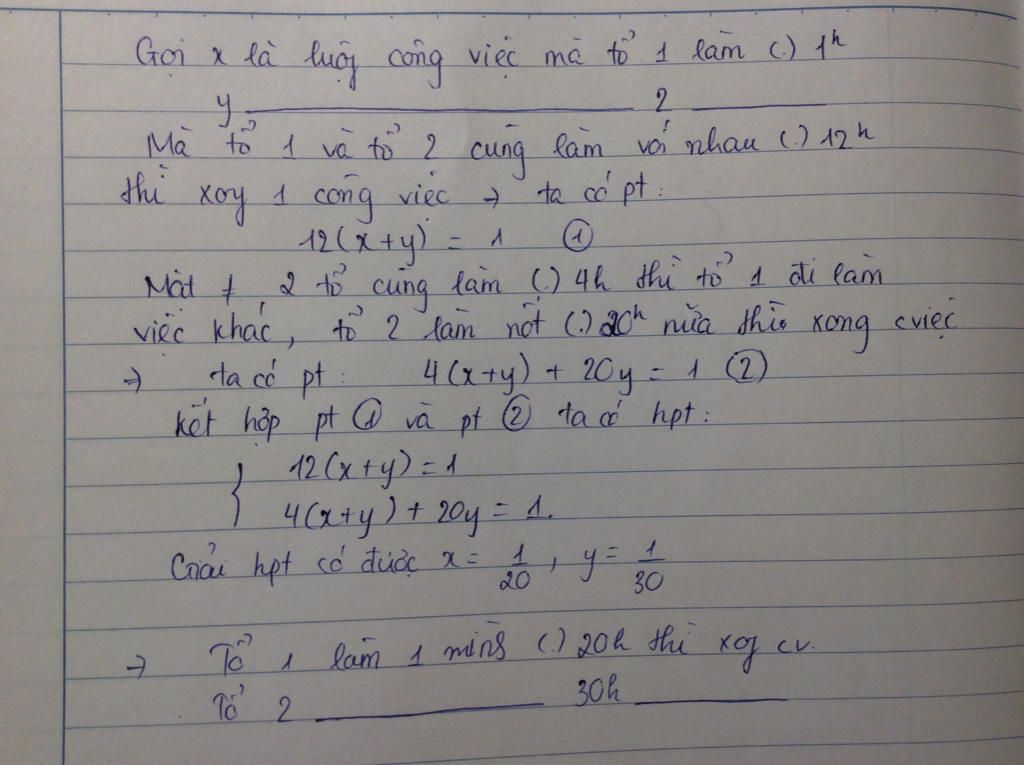 Gọi x là luợg công việc mà tổ 1 làm (.) 1h
y ____________ 2 ______
Mà tổ 1 và tổ 2 cùng làm với nhau (.) 12h
thì xog 1 công việc → ta có pt:
12(x+y) = 1 ①
Mặt ≠ 2 tổ cùng làm (.) 4h thì tổ 1 đi làm
việc khác, tổ 2 làm nốt (.) 20h nữa thì xong cviệc
→ ta có pt: 4(x+y) + 20y = 1 ②
kết hợp pt ① và pt ② ta có hpt:
{ 12(x+y) = 1
4(x+y) + 20y = 1.
Giải hpt có được x = 1/20, y = 1/30
→ Tổ 1 làm 1 mình (.) 20h thì xog cv.
Tổ 2 ____________ 30h ______